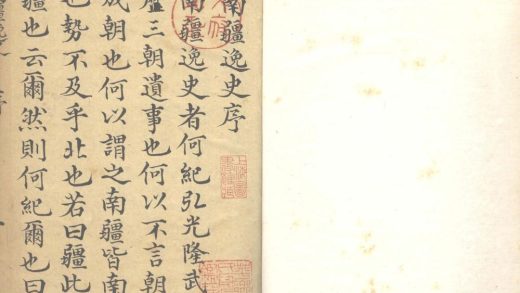 南疆逸史序
南疆逸史者何紀弘光隆武
三朝遺事也何以不言朝
成朝也何以謂之南疆皆南
也勢不及乎北也若曰疆此
疆也云爾然則何紀爾也曰